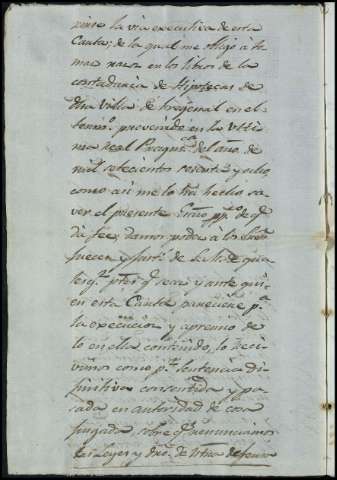 xime la via executiva de esta
Carta; de la qual me obligo à to
mar razn. en los libros de la
contaduria de Hipotecas de
dha villa de fregenal en el
termo. prevenido en la Ulti
ma real Pragmca. del ano de
mil setecientos sesenta y ocho
como asi me lo há hecho sa
ver el presente Essno ppco. de qe.
da fee; damos poder à los Sres
Jueces y Justs. de S. M. de qua
lesqr. pte. qe. sean y ante qui
en esta Carta pareciere pa.
la execucion y apremio de
lo en ella contenido, lo reci
vimos como pr. sentencia di
finitiva consentida y pa
sada en autoridad de cosa
juzgada, sobre qe. renunciamos
las Leyes y dros. de ntra defensa